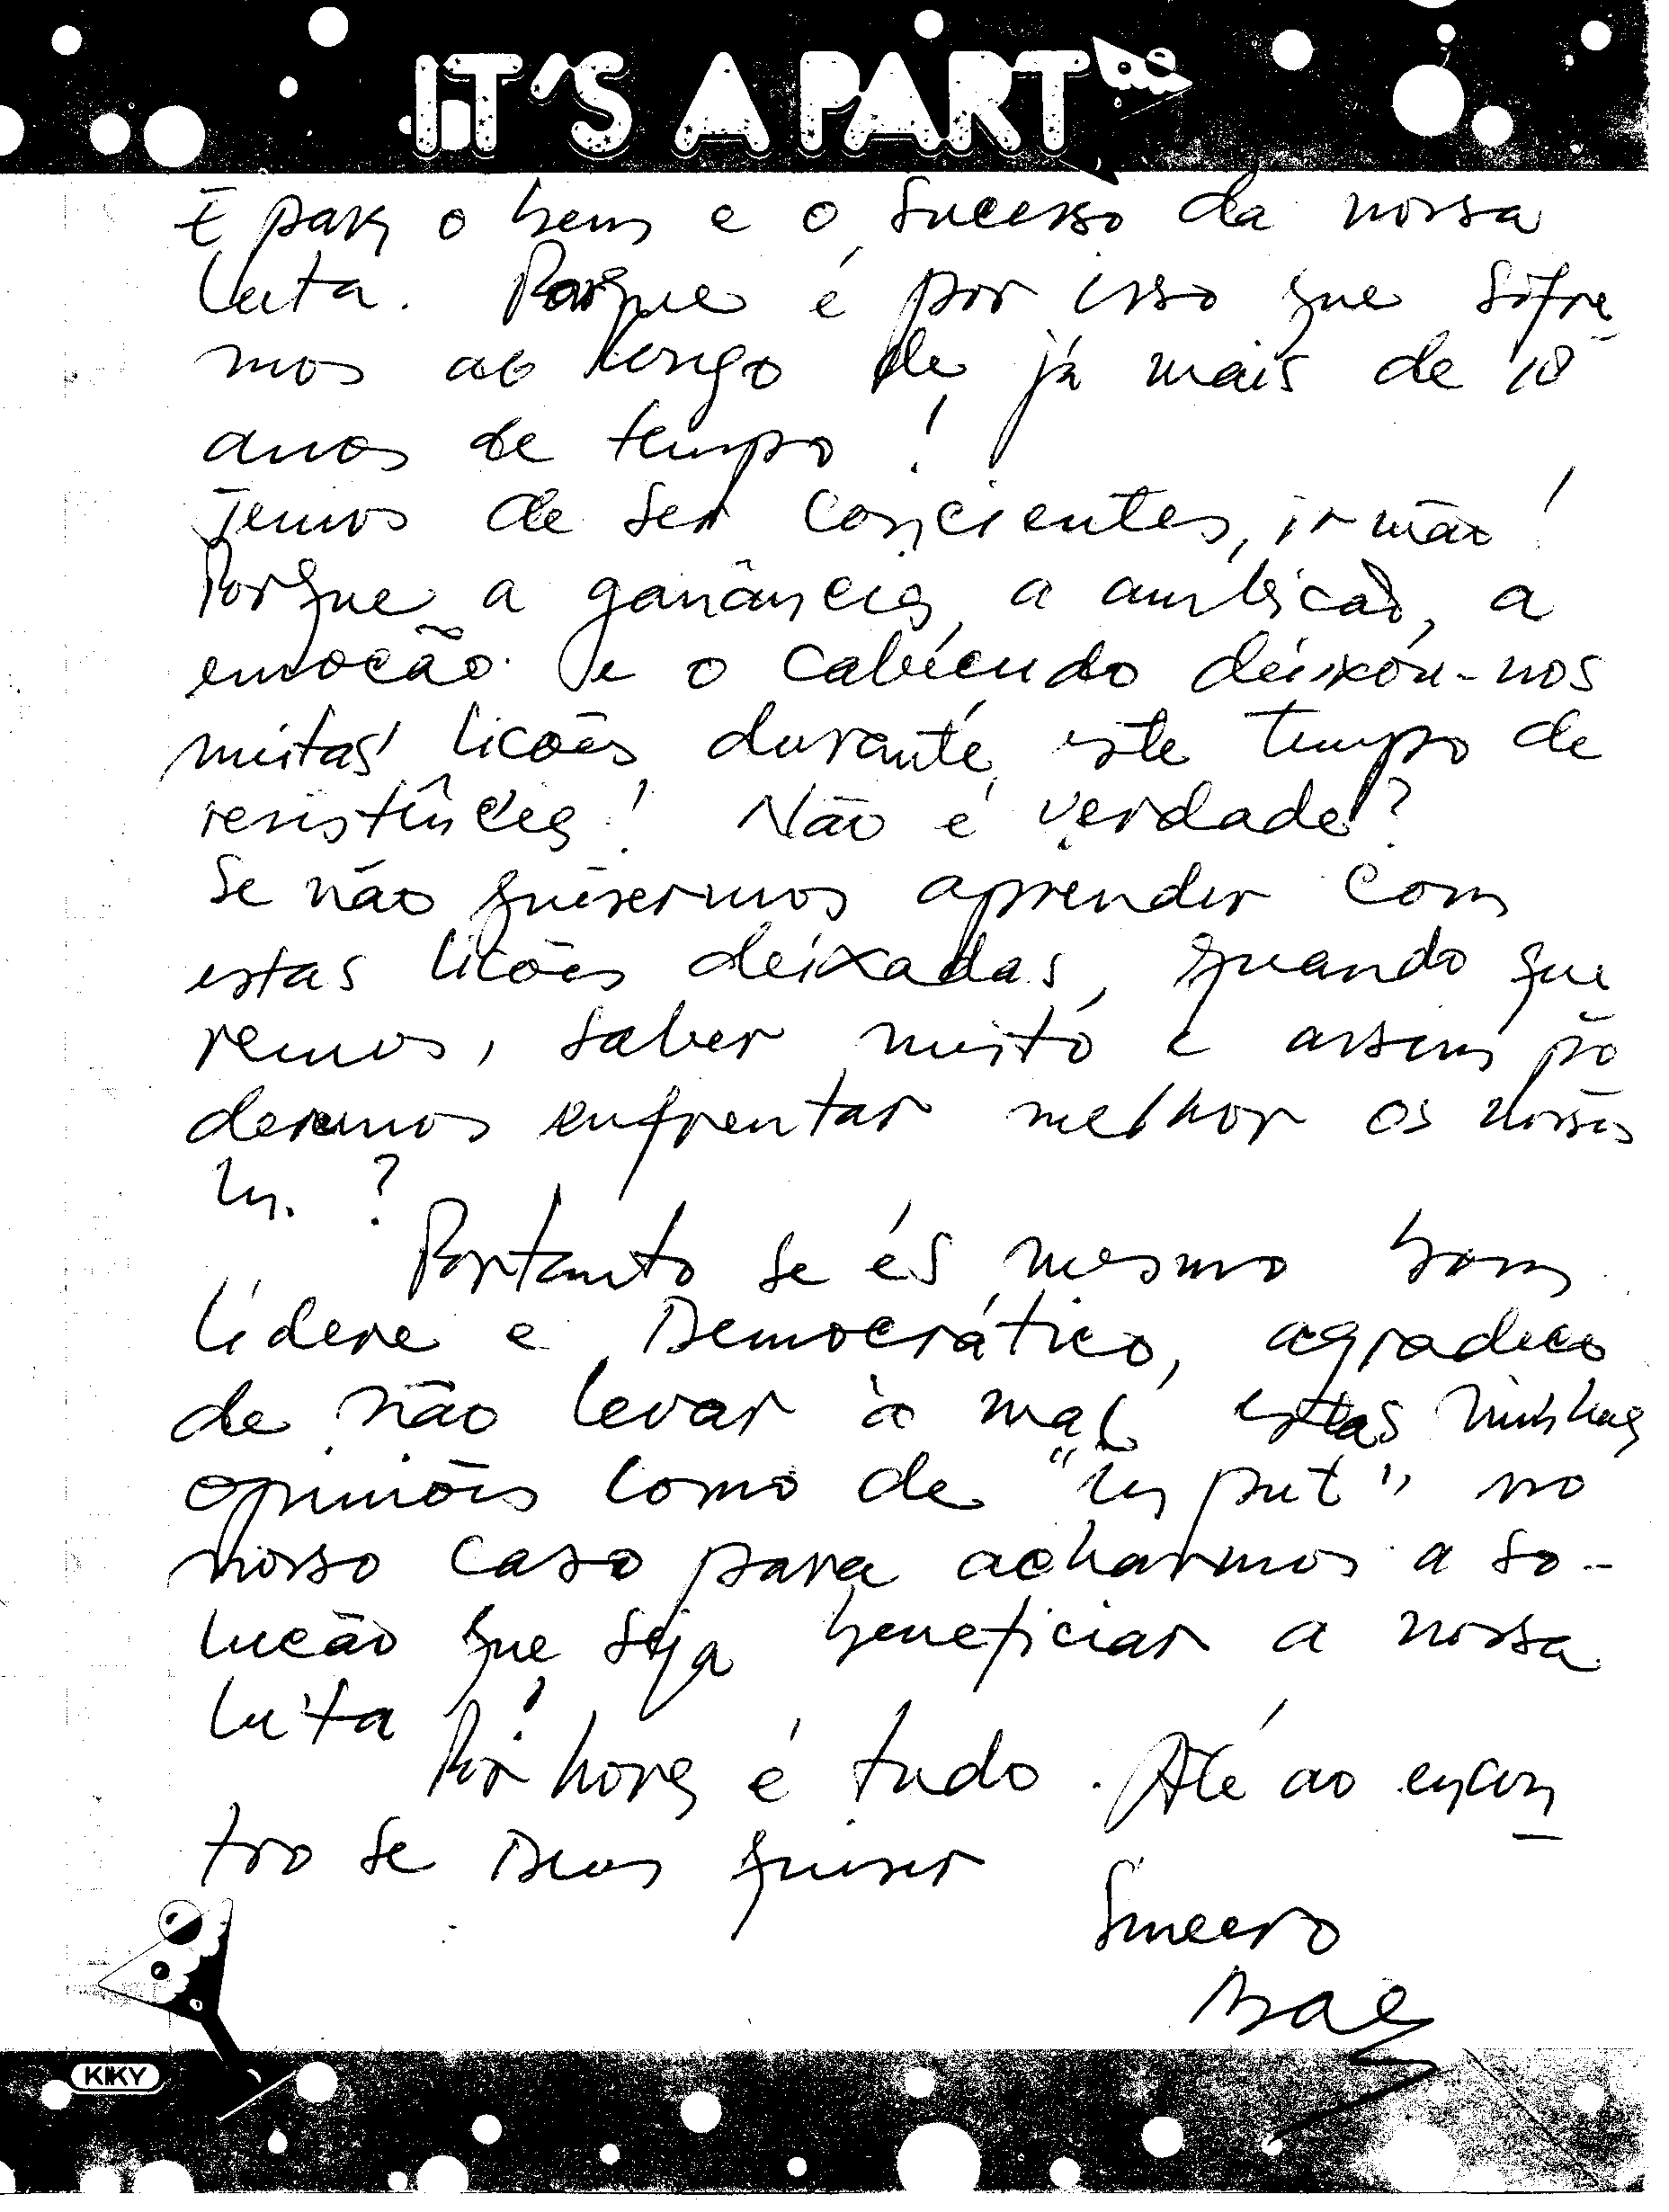 IT'S A PART
E para o bem e o sucesso da nossa
luta. Porque é por isso que sofre-
mos ao longo de já mais de 18
anos de tempo!
Temos de ser concientes, irmão!
Porque a ganância, a ambicão, a
emocão e o deixou-nos
muitas licões durante este tempo de
resistência! Não é verdade?
Se não quisermos aprender com
estas licões deixadas, quando que
remos, saber muito e assim po
deremos enfrentar melhor os nossos
In. ?
Portanto se és mesmo bom
lídere e Democrático, agradeco
de não levar à mal estas minhas
opiniões como de "In put" no
nosso caso para acharmos a so-
lucão que seja beneficiar a nossa
luta
Por hora é tudo. Até ao encon
tro se Deus quiser
Sincero
KIKY